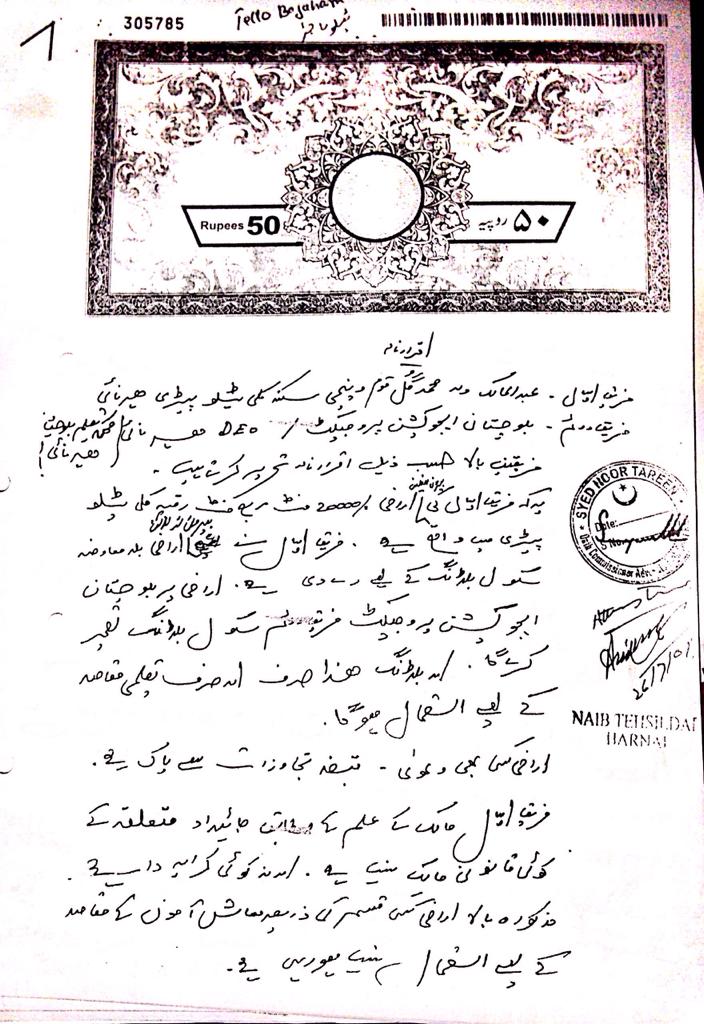 1
305785
Tello Bajaham
Rupees 50
۵۰ روپیہ
اقرار نامہ
فریق اول - عبدالمالک ولد محمد گل قوم سکنہ کلی ٹیلو پیڑی ھرنائی
فریق دوئم - بلوچستان ایجوکیشن پروجیکٹ / DEO ھرنائی / محکمہ تعلیم بلوچستان ھرنائی
فریقین بالا حسب ذیل اقرار نامہ تحریر کرتے ہیں -
یہ کہ فریق اول کی اراضی 20000 فٹ مربع فٹ رقبہ کلی ٹیلو
پیڑی میں واقع ہے - فریق اول نے اراضی بلا معاوضہ
سکول بلڈنگ کے لیے دے دی ہے - اراضی پر بلوچستان
ایجوکیشن پروجیکٹ فریق دوئم سکول بلڈنگ تعمیر
کرے گا - اور بلڈنگ ھذا صرف اور صرف تعلیمی مقاصد
کے لیے استعمال ہوگا -
اراضی کسی بھی دعوٰی - قبضہ تجاوزات سے پاک ہے -
فریق اول مالک کے علم کے مطابق جائیداد متعلقہ کے
کوئی قانونی مالک نہیں ہے - اور نہ کوئی کرایہ دار ہے -
مذکورہ بالا اراضی کسی قسم کی ذریعہ معاش آمدن کے مقاصد
کے لیے استعمال نہیں ہو رہی ہے -
SYED NOOR TAREEN
Date:
26/7/01
NAIB TEHSILDAR
HARNAI